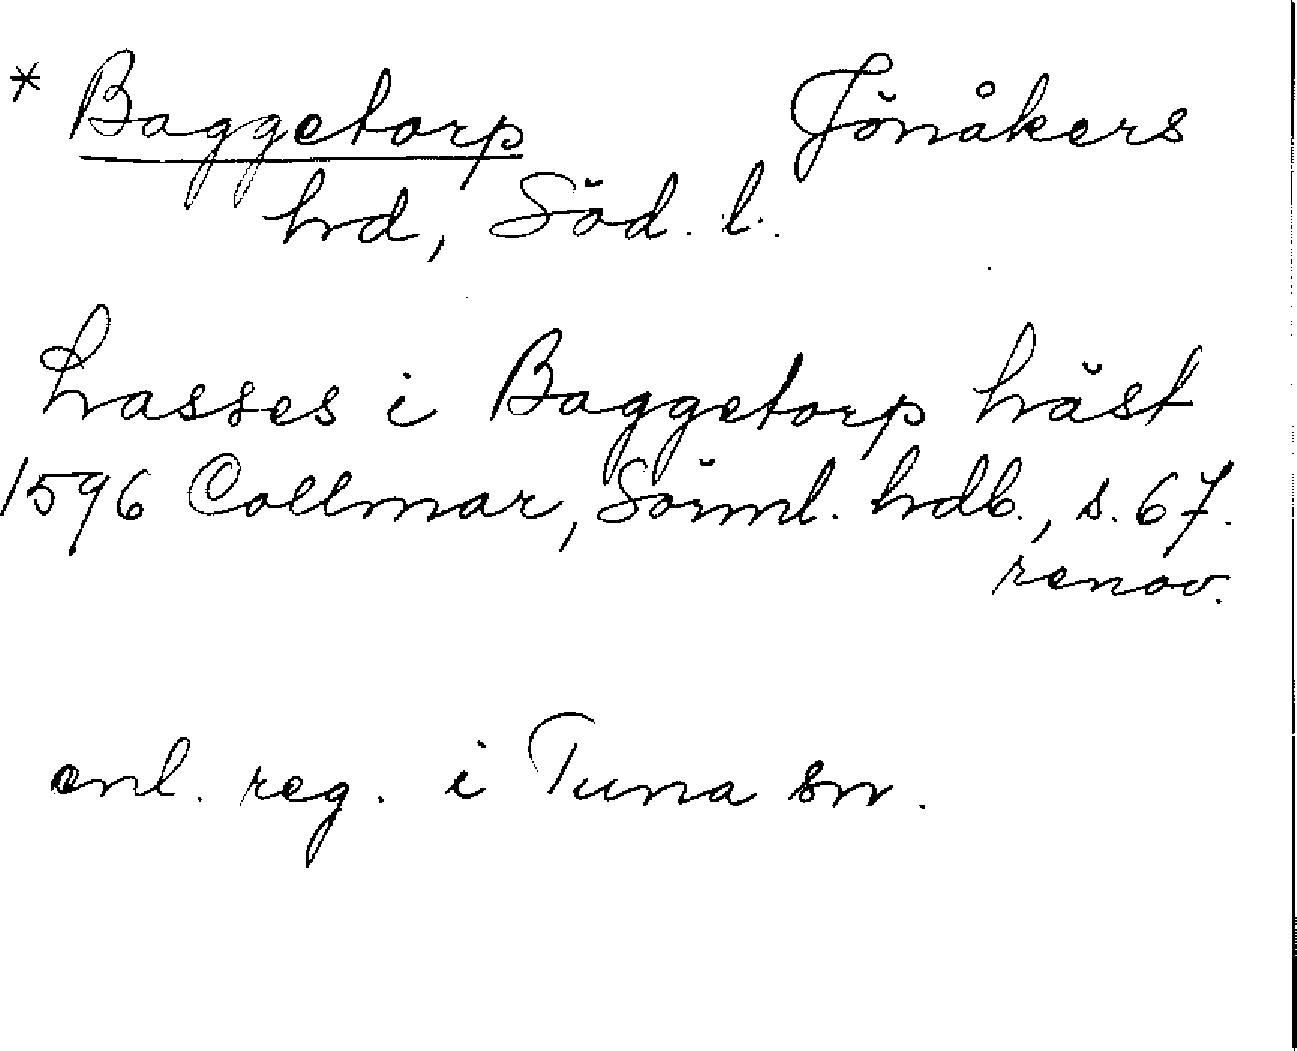 * Baggetorp Jönåkers
hd, Söd. l.
Lasses i Baggetorp häst
1596 Collmar, Sörml. hdb., s. 67.
renov.
enl. reg. i Tuna sn.